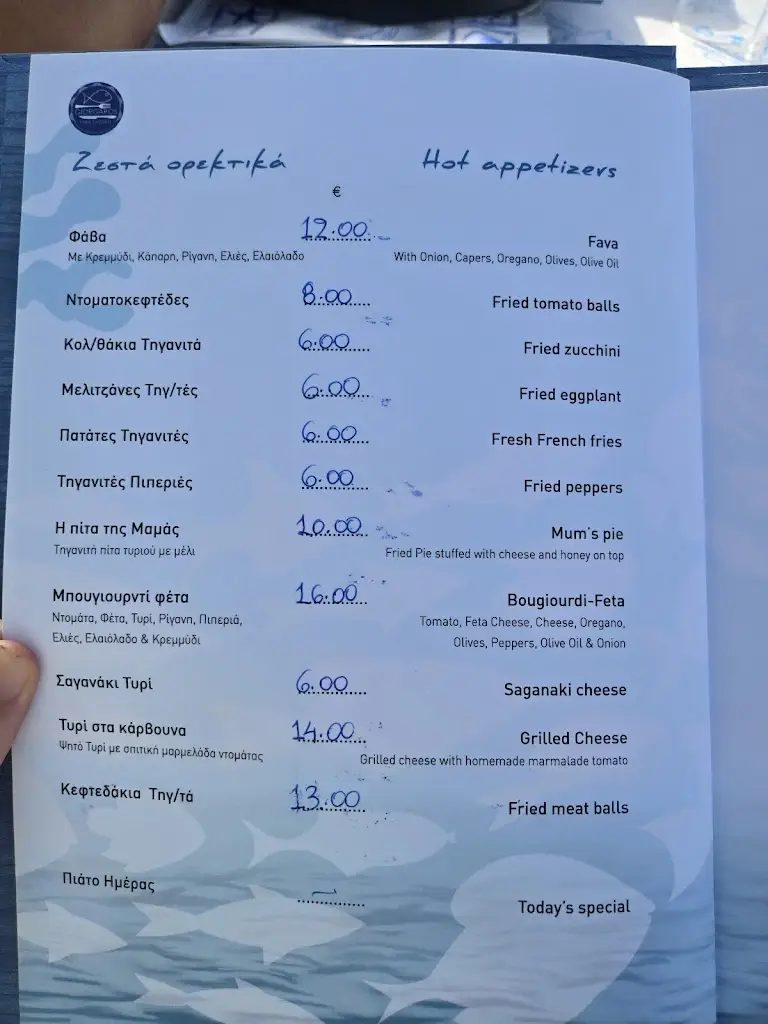 Ζεστά ορεκτικά Hot appetizers
€
Φάβα 12.00 Fava
Με Κρεμμύδι, Κάπαρη, Ρίγανη, Ελιές, Ελαιόλαδο With Onion, Capers, Oregano, Olives, Olive Oil
Ντοματοκεφτέδες 8.00 Fried tomato balls
Κολ/θάκια Τηγανιτά 6.00 Fried zucchini
Μελιτζάνες Τηγ/τές 6.00 Fried eggplant
Πατάτες Τηγανιτές 6.00 Fresh French fries
Τηγανιτές Πιπεριές 6.00 Fried peppers
Η πίτα της Μαμάς 10.00 Mum's pie
Τηγανιτή πίτα τυριού με μέλι Fried Pie stuffed with cheese and honey on top
Μπουγιουρντί φέτα 16.00 Bougiourdi-Feta
Ντομάτα, Φέτα, Τυρί, Ρίγανη, Πιπεριά, Tomato, Feta Cheese, Cheese, Oregano,
Ελιές, Ελαιόλαδο & Κρεμμύδι Olives, Peppers, Olive Oil & Onion
Σαγανάκι Τυρί 6.00 Saganaki cheese
Τυρί στα κάρβουνα 14.00 Grilled Cheese
Ψητό Τυρί με σπιτική μαρμελάδα ντομάτας Grilled cheese with homemade marmalade tomato
Κεφτεδάκια Τηγ/τά 13.00 Fried meat balls
Πιάτο Ημέρας Today's special